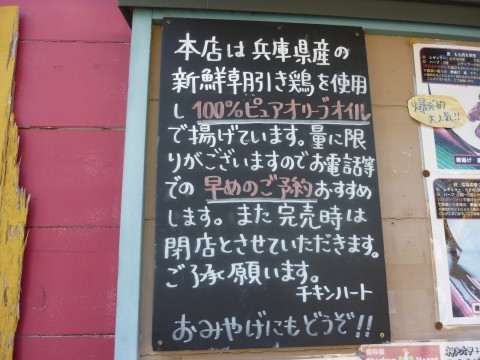 本店は兵庫県産の
新鮮朝引き鶏を使用
し100%ピュアオリーブオイル
で揚げています。量に限
りがございますのでお電話等
での早めのご予約おすすめ
します。また完売時は
閉店とさせていただきます。
ご了承願います。
チキンハート
おみやげにもどうぞ!!
爆発的
大人気!!